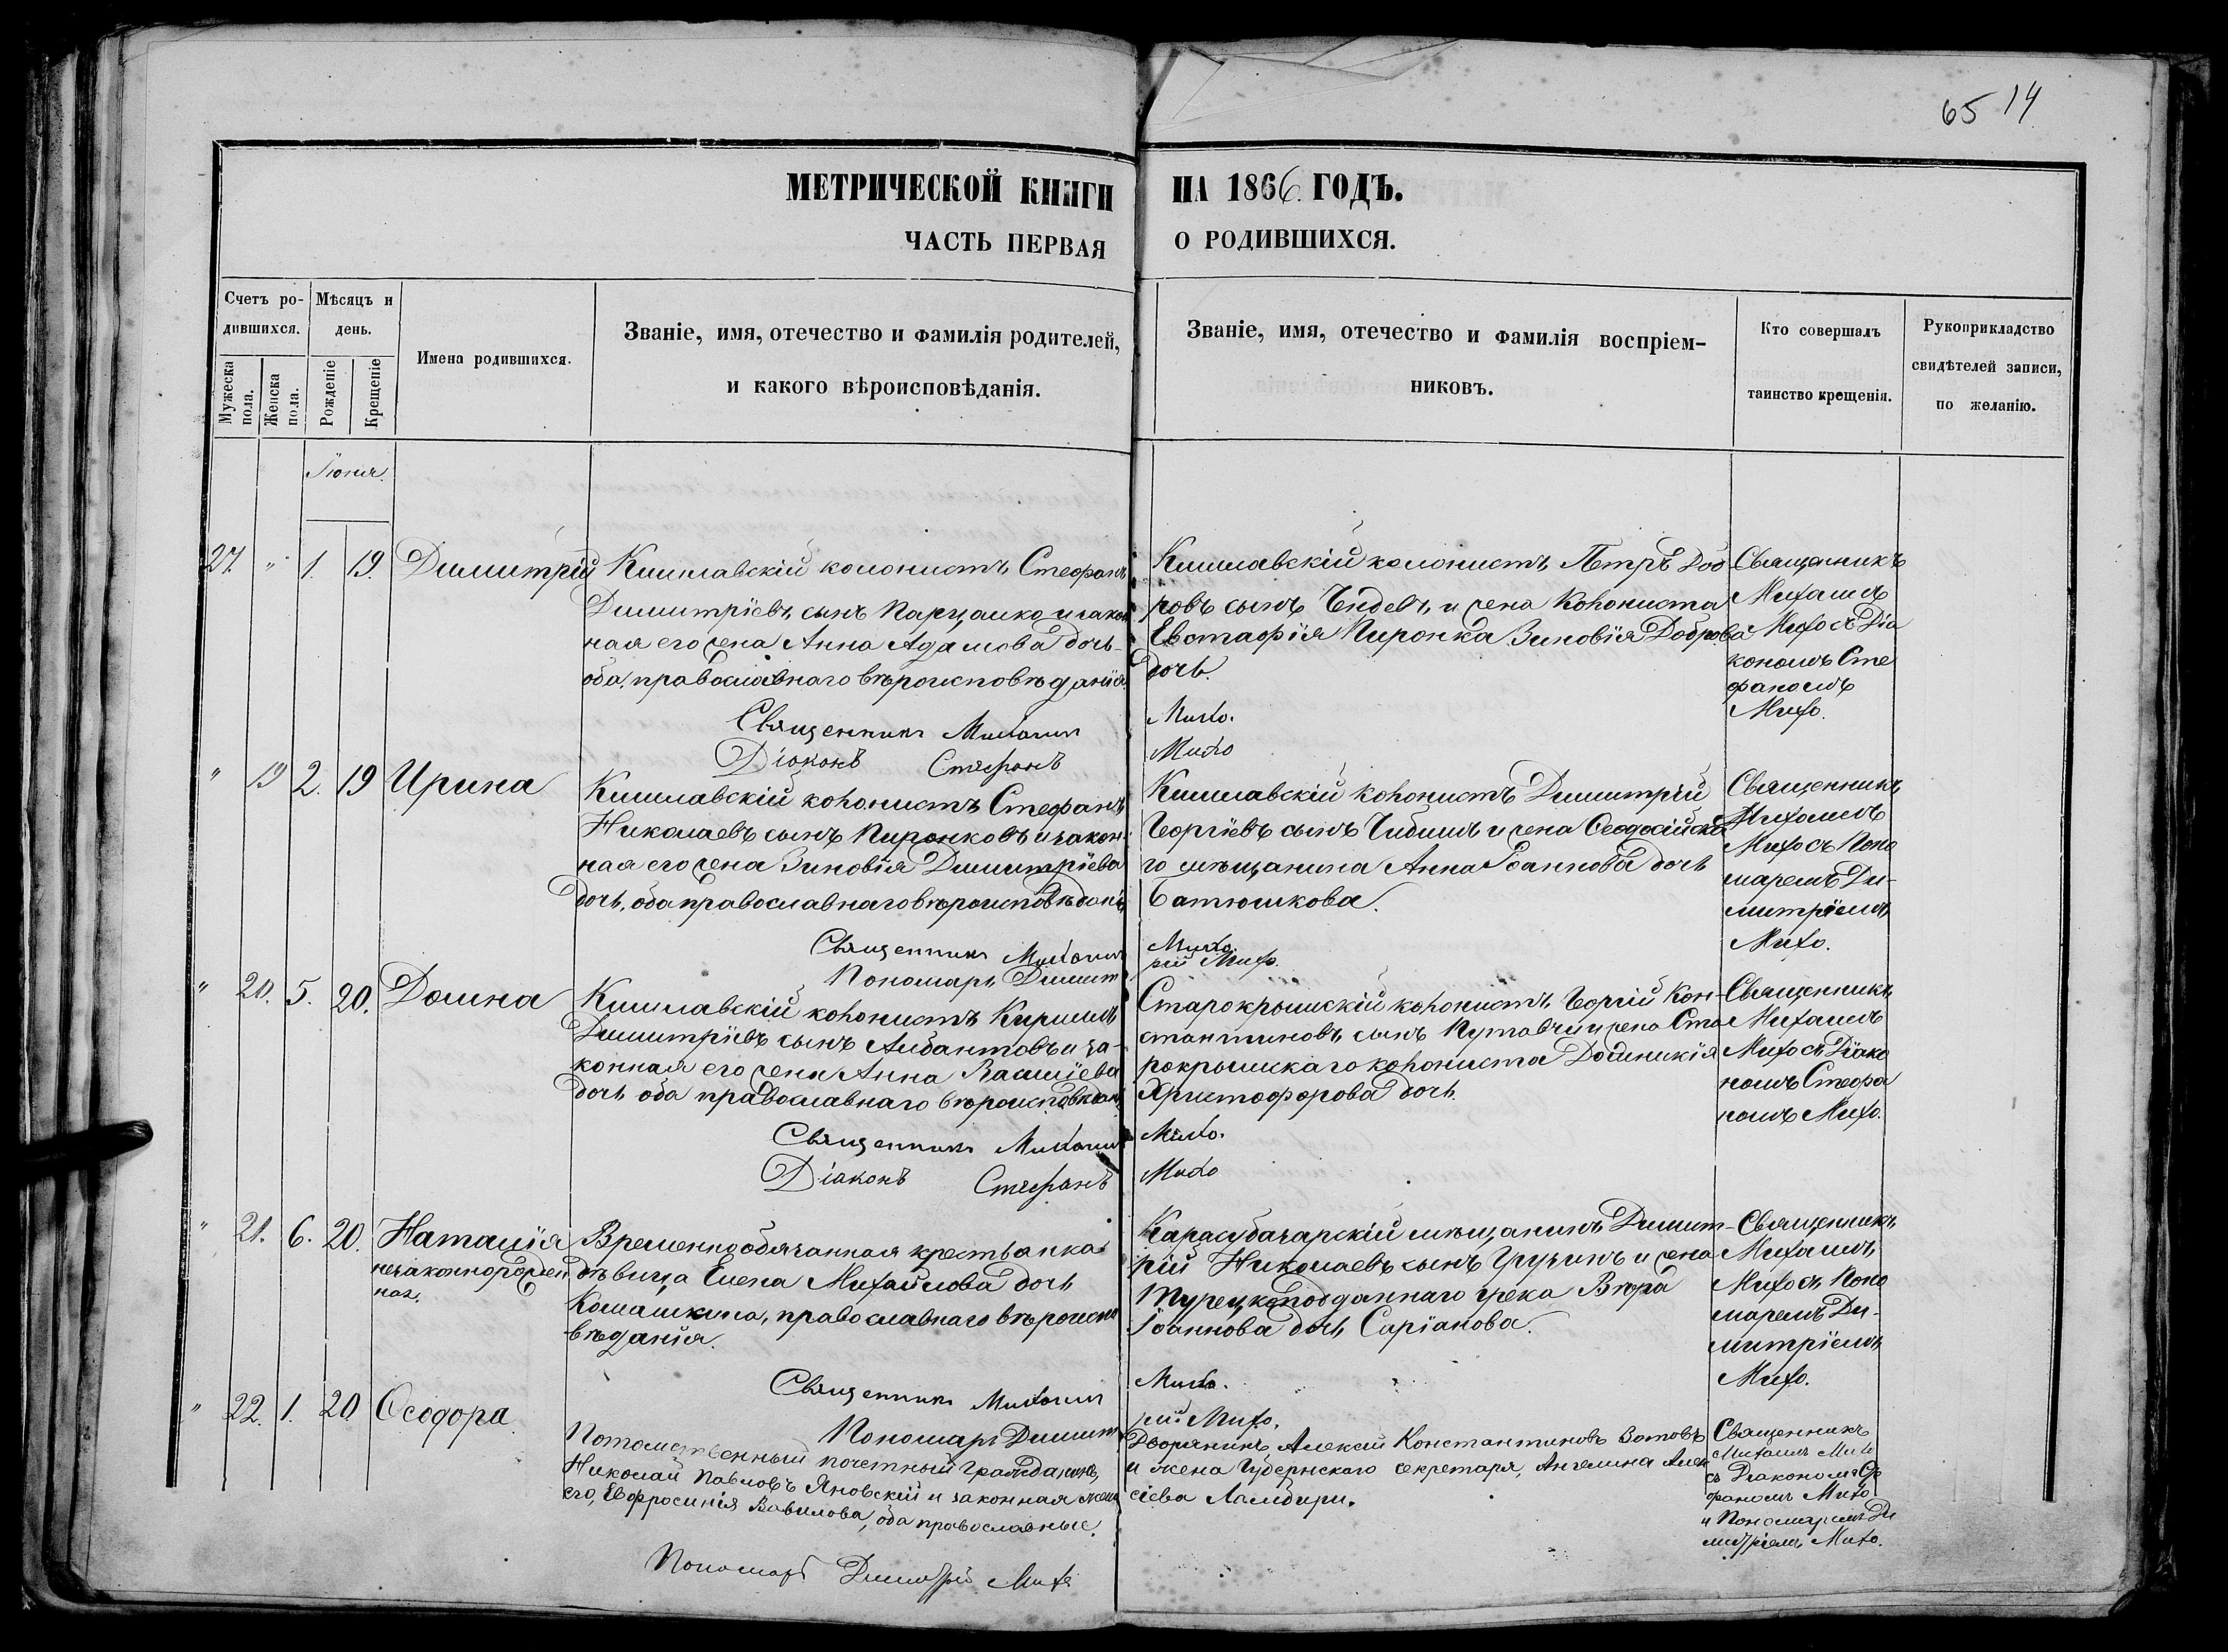 65 14
МЕТРИЧЕСКОЙ КНИГИ НА 1866. ГОДЪ.
ЧАСТЬ ПЕРВАЯ О РОДИВШИХСЯ.
Счетъ ро-
дившихся.
Мужеска
пола.
Женска
пола.
Мѣсяцъ и
день.
Рожденіе
Крещеніе
Имена родившихся.
Званіе, имя, отечество и фамилія родителей,
и какого вѣроисповѣданія.
Званіе, имя, отечество и фамилія воспріем-
никовъ.
Кто совершалъ
таинство крещенія.
Рукоприкладство
свидѣтелей записи,
по желанію.
Іюня.
27. " 1. 19. Димитрій
Кишлавскій колонистъ Стефанъ
Димитріевъ сынъ Парцалко и закон
ная его жена Анна Адамова дочь
оба, православнаго вѣроисповѣданія.
Священникъ Михаилъ Михо.
Діаконъ Стефанъ Михо
Кишлавскій колонистъ Петръ Доб
ровъ сынъ Чндевъ, и жена колониста
Евстафія Пиронка Зиновія Доброва
дочь.
Священникъ
Михаилъ
Михо съ Діа
кономъ Сте
фаномъ
Михо.
" 19 2. 19 Ирина
Кишлавскій колонистъ Стефанъ
Николаевъ сынъ Пиронковъ и закон
ная его жена Зиновія Димитріева
дочь, оба православнаго вѣроисповѣдані
Священникъ Михаилъ Михо.
Пономарь Димит рій Михо.
Кишлавскій колонистъ Димитрій
Георгіевъ сынъ Чибишъ и жена Ѳеодосійска
го мѣщанина Анна Іоаннова дочь
Батюшкова.
Священникъ
Михаилъ
Михо съ Поно
маремъ Ди-
митріемъ
Михо.
" 20. 5. 20. Домна
Кишлавскій колонистъ Кириллъ
Димитріевъ сынъ Арбантовъ и за-
конная его жена Анна Василіева
дочь оба православнаго вѣроисповѣдан
Священникъ Михаилъ Михо.
Діаконъ Стефанъ Михо
Старокрымскій колонистъ Георгій Кон-
стантиновъ сынъ Путавчи и жена Ста
рокрымскаго колониста Домникія
Христофорова дочь.
Священникъ
Михаилъ
Михо съ Діако
номъ Стефа
номъ Михо.
" 21. 6. 20. Наталія
незаконнорожден
ная.
Временнообязанная крестьянка
дѣвица Елена Михайлова дочь
Комашкина, православнаго вѣроиспо
вѣданія.
Священникъ Михаилъ Михо.
Пономарь Димит рій Михо.
Карасубазарскій мѣщанинъ Димит-
рій Николаевъ сынъ Грузинъ и жена
Турецкоподданнаго грека Вѣра
Іоаннова дочь Саріанова.
Священникъ
Михаилъ
Михо съ Поно
маремъ Ди-
митріемъ
Михо.
" 22. 1. 20 Ѳеодора.
Потомственный почетный Гражданинъ,
Николай Павловъ Яновскій и законная жена
его, Евфросинія Вавилова, оба православные.
Пономарь Димитрій Михо
Дворянинъ, Алексѣй Константиновъ Зотовъ
и жена Губернскаго секретаря, Ангелина Алек
сіева Ламбири.
Священникъ
Михаилъ Михо
съ Діакономъ Сте
фаномъ Михо
и Пономаремъ Ди
митріемъ Михо.